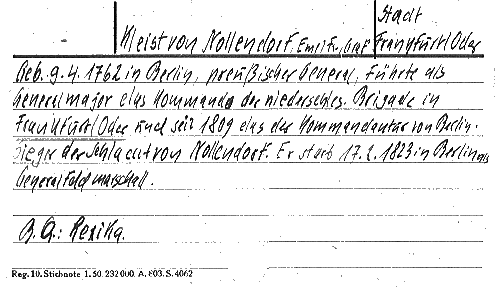 Stadt
Kleist von Nollendorf, Emil Fr., Graf Frankfurt/Oder
Geb. 9.4.1762 in Berlin, preußischer General, führte als
Generalmajor das Kommando der niederschles. Brigade in
Frankfurt/Oder und seit 1809 das der Kommandantur von Berlin.
Sieger der Schlacht von Nollendorf. Er starb 17.2.1823 in Berlin als
Generalfeldmarschall.
B.G.:
Reg. 10. Stichnote 1. 50. 232000. A. 803. S. 4062